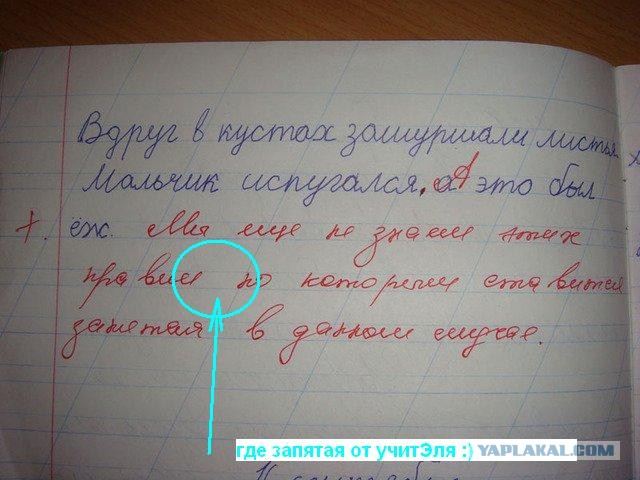 Вдруг в кустах зашуршали листья
Мальчик испугался. а А это был
+. ёж. Мы еще не знаем этих
правил по которым ставится
запятая в данном случае.
где запятая от учитЭля :) YAPLAKAL.COM